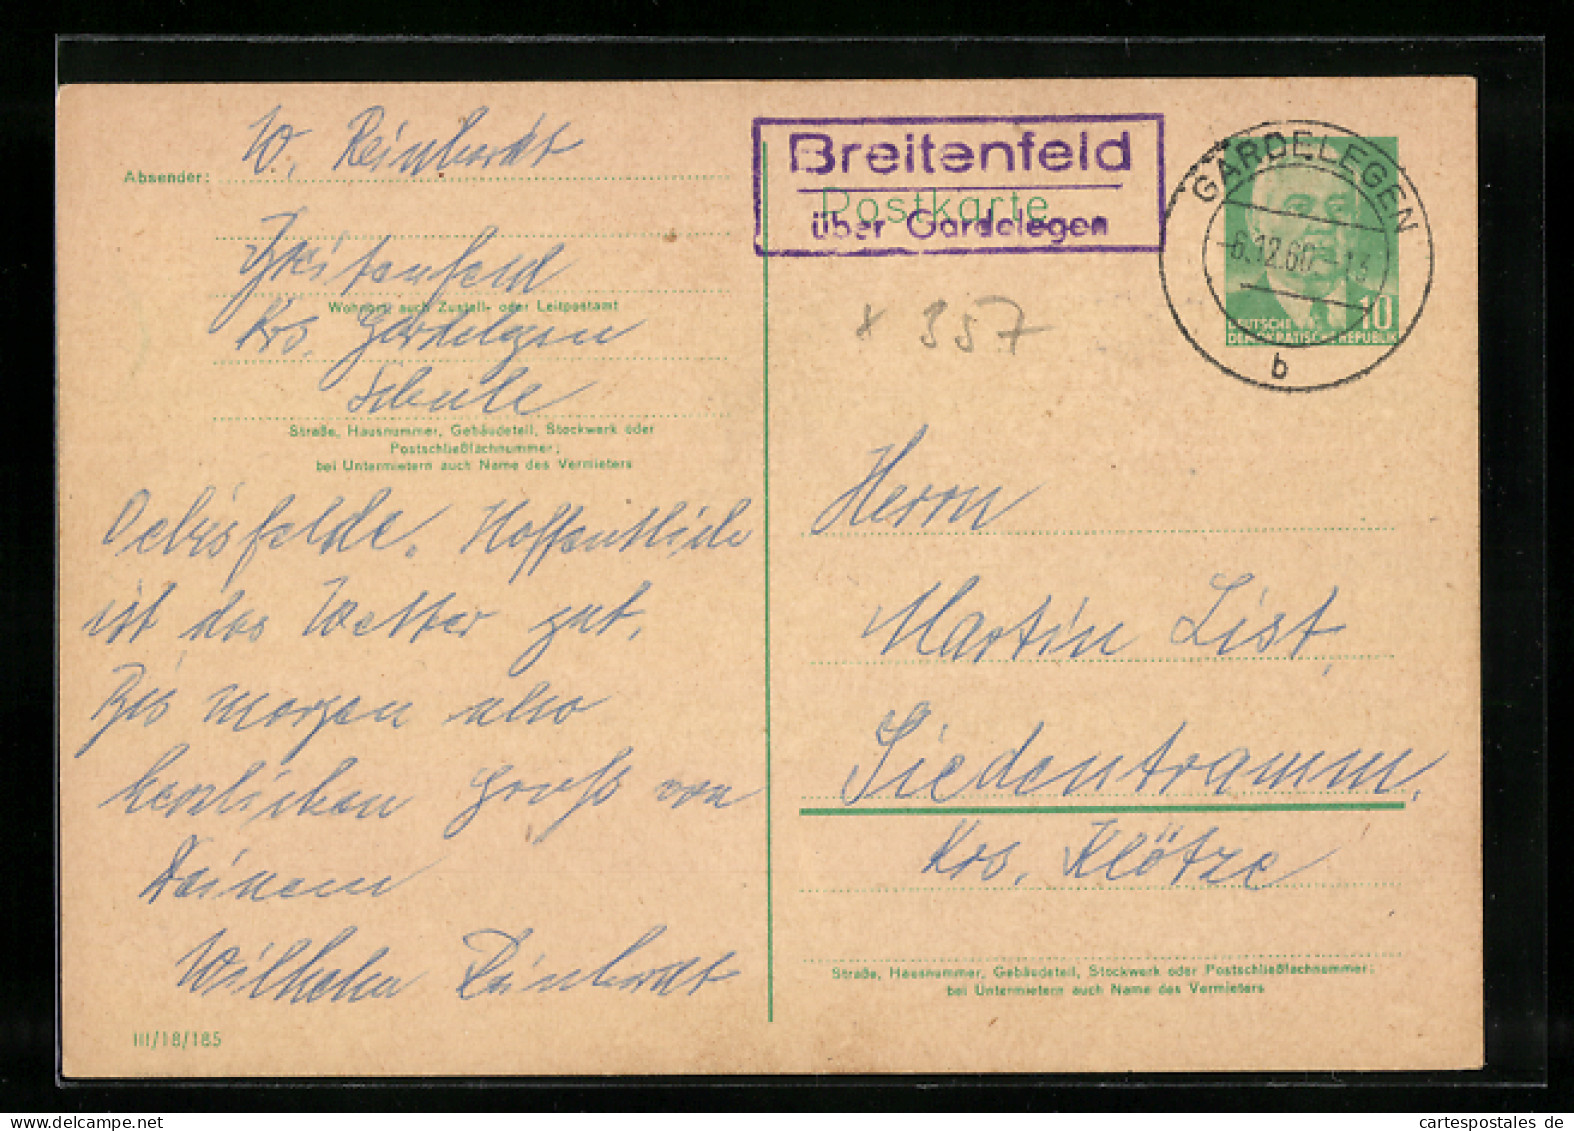 Absender: W. Reinhardt
Breitenfeld
Wohnort, auch Zustell- oder Leitpostamt
Krs. Gardelegen
Schule
Straße, Hausnummer, Gebäudeteil, Stockwerk oder
Postschließfachnummer;
bei Untermietern auch Name des Vermieters
Oebisfelde. Hoffentlich
ist das Wetter gut.
Bis morgen also
herzlichen Gruß von
Deinem
Wilhelm Reinhardt
III/18/185
Breitenfeld
Postkarte
über Gardelegen
GARDELEGEN
-6.12.60-13
b
10
DEUTSCHE
DEMOKRATISCHE REPUBLIK
x 357
Herrn
Martin List,
Siedentramm,
Krs. Klötze
Straße, Hausnummer, Gebäudeteil, Stockwerk oder Postschließfachnummer;
bei Untermietern auch Name des Vermieters
cartespostales.de